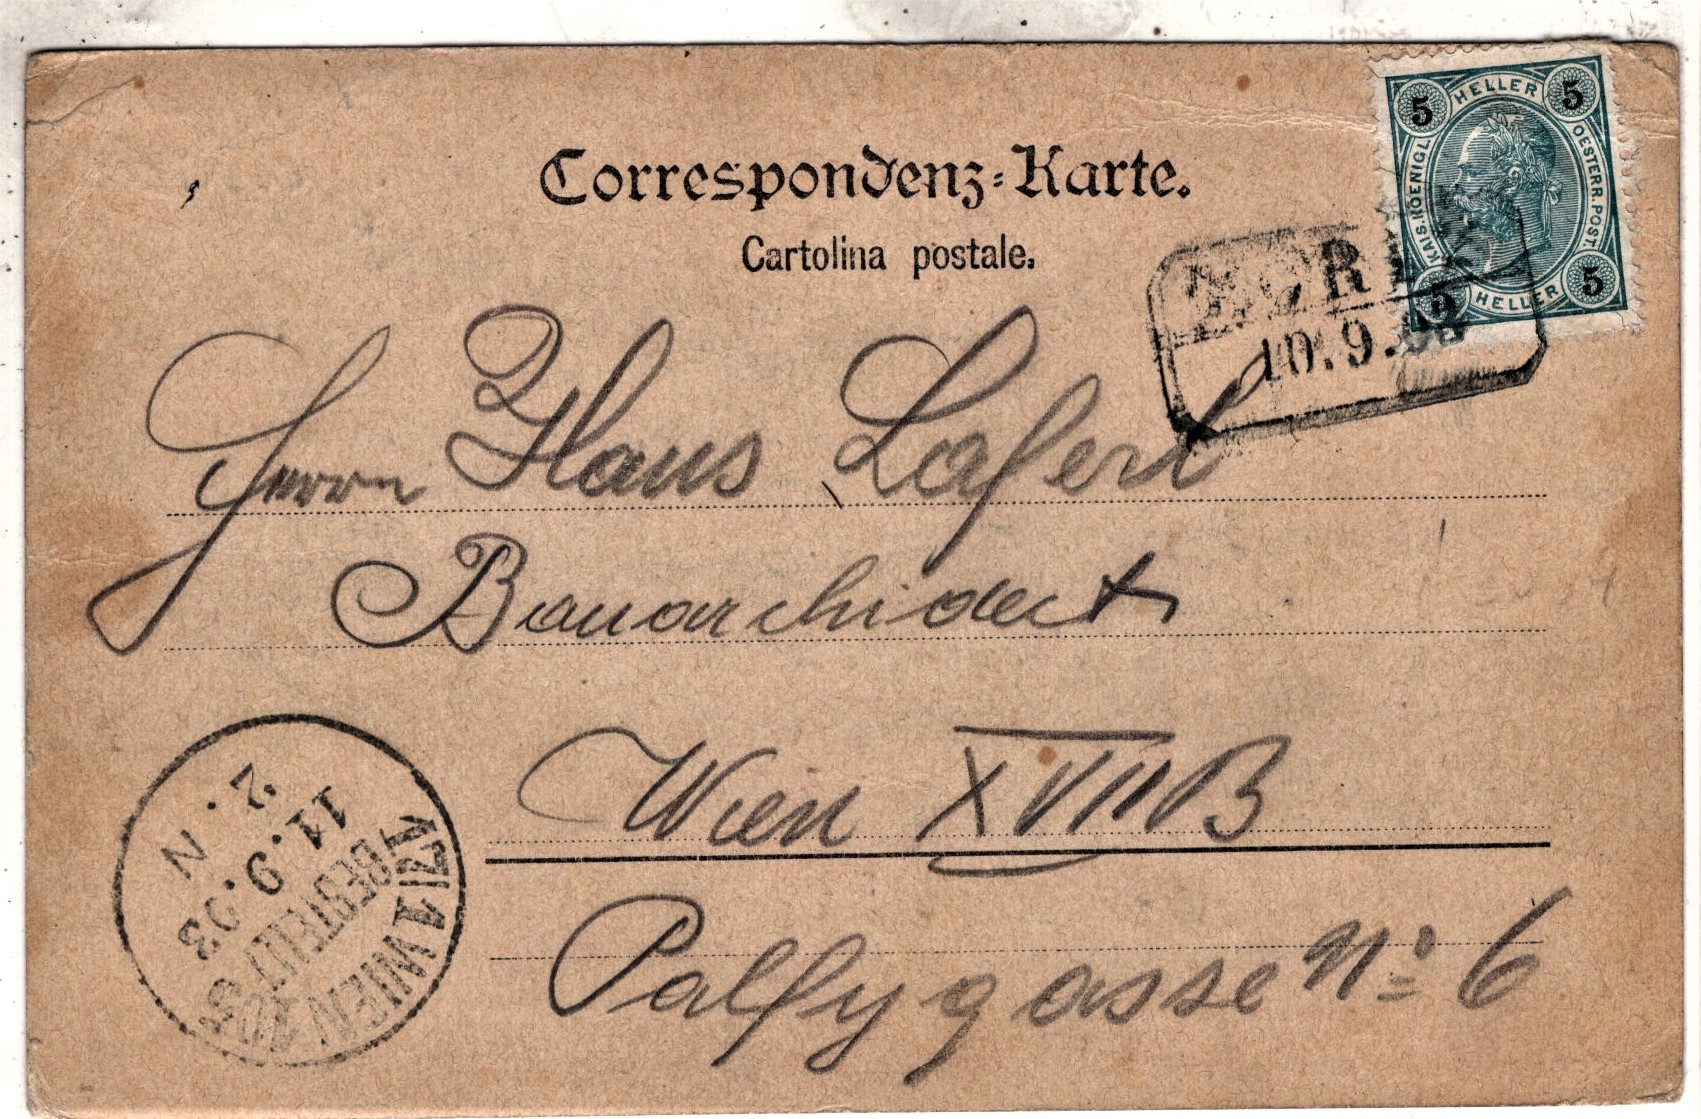 Correspondenz-Karte.
Cartolina postale.
HELLER
5 5
KAIS. KOENIGL.
OESTERR. POST.
5 5
HELLER
10.9.
Herrn Hans Lafert
Bauarchidect
Wien XVIII B
Palfygasse No 6
17/1 WIEN 105
BESTELLT
11.9.03
2.N